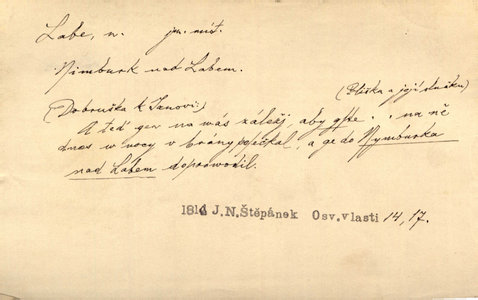 Labe, n. jm. míst.
Nimburk nad Labem.
(Dobruška k Janovi:) (Eliška a její družku)
A teď gen na wás záležj, aby gste . . na ně
dnes w nocy v brány počkal, a ge do Nymburka
nad Labem doprowodil.
1814 J.N.Štěpánek Osv.vlasti 14, 17.